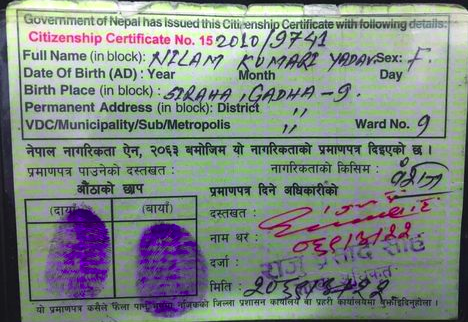 Government of Nepal has issued this Citizenship Certificate with following details:
Citizenship Certificate No. 15 2010/9741
Full Name (in block): NILAM KUMARI YADAV Sex: F.
Date Of Birth (AD) : Year Month Day
Birth Place (in block) : SIRAHA, GADHA-9.
Permanent Address (in block): District "
VDC/Municipality/Sub/Metropolis " Ward No. 9
नेपाल नागरिकता ऐन, २०६३ बमोजिम यो नागरिकताको प्रमाणपत्र दिइएको छ ।
प्रमाणपत्र पाउनेको दस्तखत : नागरिकताको किसिम : वंशज
औंठाको छाप प्रमाणपत्र दिने अधिकारीको
(दायाँ) (बायाँ) दस्तखत :
नाम थर :
दर्जा :
मिति :
यो प्रमाणपत्र कसैले फेला पारेमा नजिकको जिल्ला प्रशासन कार्यालय वा प्रहरी कार्यालयमा बुझाईदिनुहोला ।